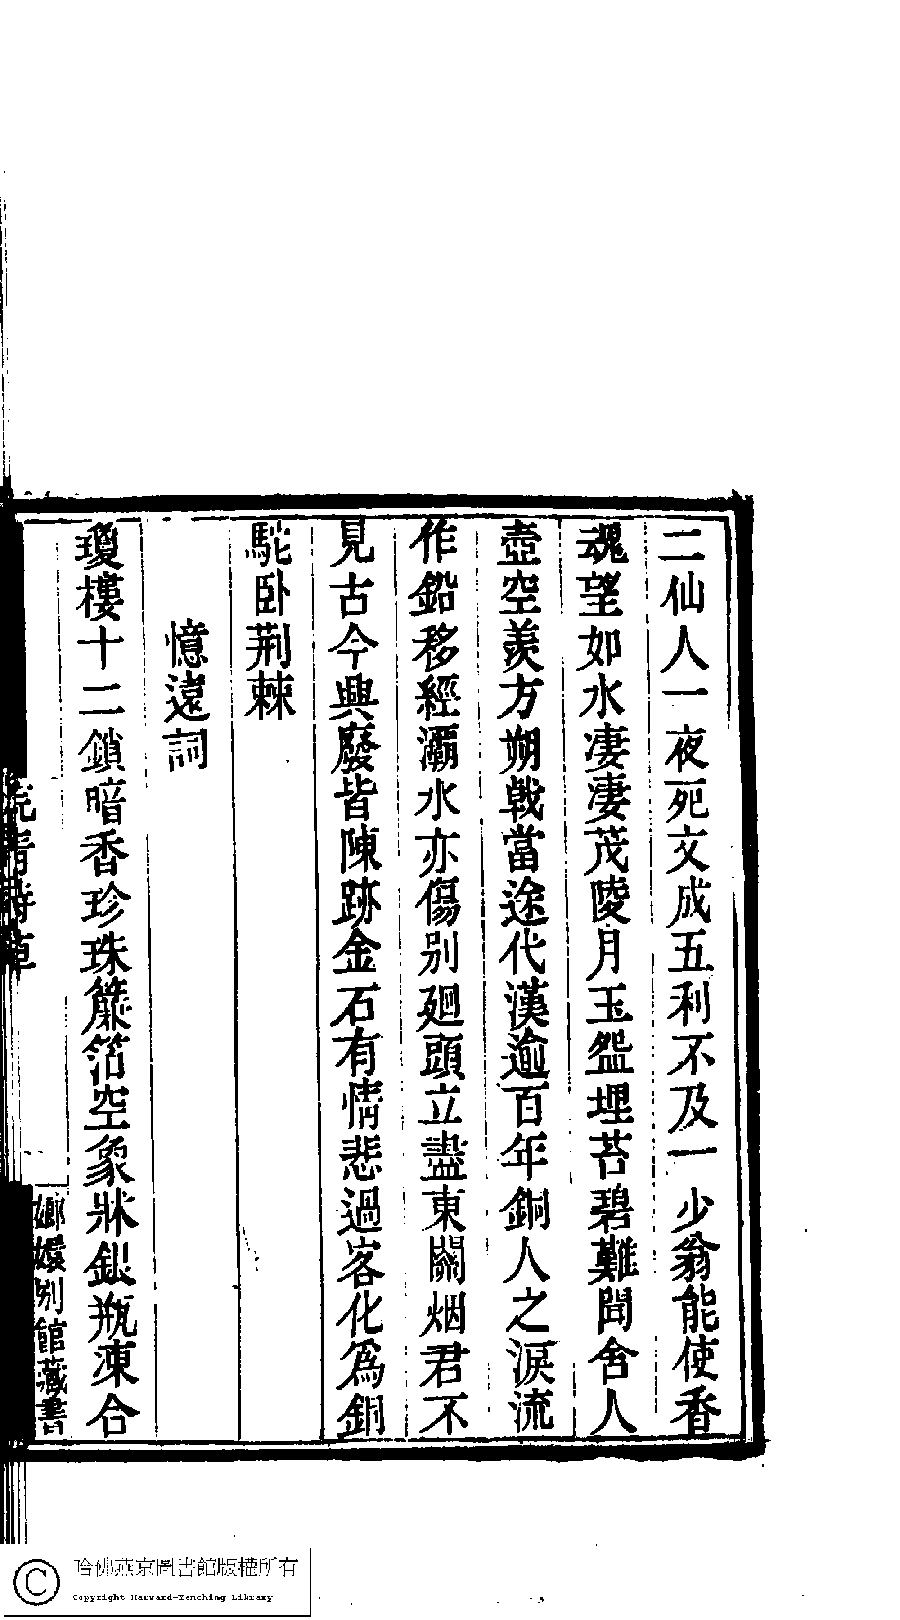 二仙人一夜死文成五利不及一少翁能使香
魂望如水凄凄茂陵月玉盌埋苔碧難聞舍人
壺空羨方朔戟當途代漢逾百年銅人之淚流
作鉛移經灞水亦傷別廻頭立盡東關烟君不
見古今興廢皆陳跡金石有情悲過客化爲銅
駝卧荆棘
憶遠詞
瓊樓十二鎖暗香珍珠簾箔空象牀銀瓶凍合
詩草
嫏嬛別館藏書
哈佛燕京圖書館版權所有
Copyright Harvard-Yenching Library